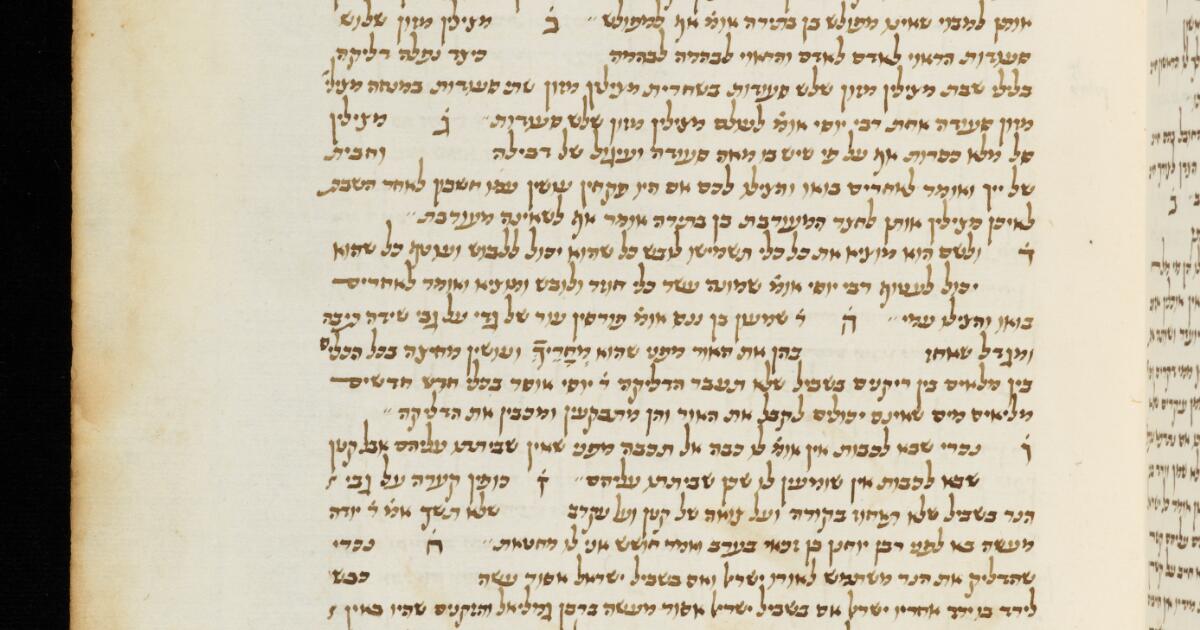 אותן למבוי שאינו מפולש בן בתירה אומ׳ אף למפולש ב מצילין מזון שלוש
סעודות הראוי לאדם לאדם והראוי לבהמה לבהמה כיצד נפלה דליקה
בלילי שבת מצילין מזון שלש סעודות בשחרית מצילין מזון שתי סעודות במנחה מצילי׳
מזון סעודה אחת רבי יוסי אומ׳ לעולם מצילין מזון שלש סעודות ג מצילין
סל מלא ככרות אף על פי שיש בו מאה סעודה ועיגול של דבילה וחבית
של יין ואומר לאחרים בואו והצילו לכם אם היו פקחין עושין עמו חשבון לאחר השבת
לאיכן מצילין אותן לחצר המעורבת בן בתירה אומר אף לשאינה מעורבת
ד ולשם הוא מוציא את כל כלי תשמישו לובש כל שהוא יכול ללבוש ועוטף כל שהוא
יכול לעטוף רבי יוסי אומ׳ שמונה עשר כלי חוזר ולובש ומוציא ואומר לאחרים
בואו והצילו עמי ה ר׳ שמעון בן ננס אומ׳ פורסין עור של גדי על גבי שידה תיבה
ומגדל שאחז בהן את האור מפני שהוא מחריך ועושין מחיצה בכל הכלים
בין מלאים בין ריקנים בשביל שלא תעבר הדליקה ר׳ יוסי אוסר בכלי חרש חדשים
מליאים מים שאינם יכולים לקבל את האור והן מתבקעין ומכבין את הדליקה
ו נכרי שבא לכבות אין אומ׳ לו כבה אל תכבה מפני שאין שביתתו עליהם אבל קטן
שבא לכבות אין שומעין לו שכן שביתתו עליהם ז כופין קערה על גבי
הנר בשביל שלא תאחוז בקורה ועל צואה של קטן ועל עקרב שלא תשך אמ׳ ר׳ יודה
מעשה בא לפני רבן יוחנן בן זכאי בערב ואמר חושש אני לו מחטאת ח נכרי
שהדליק את הנר משתמש לאורו ישראל ואם בשביל ישראל אסור עשה כבש
לירד בו ירד אחריו ישראל אם בשביל ישראל אסור מעשה ברבן גמליאל והזקנים שהיו באין